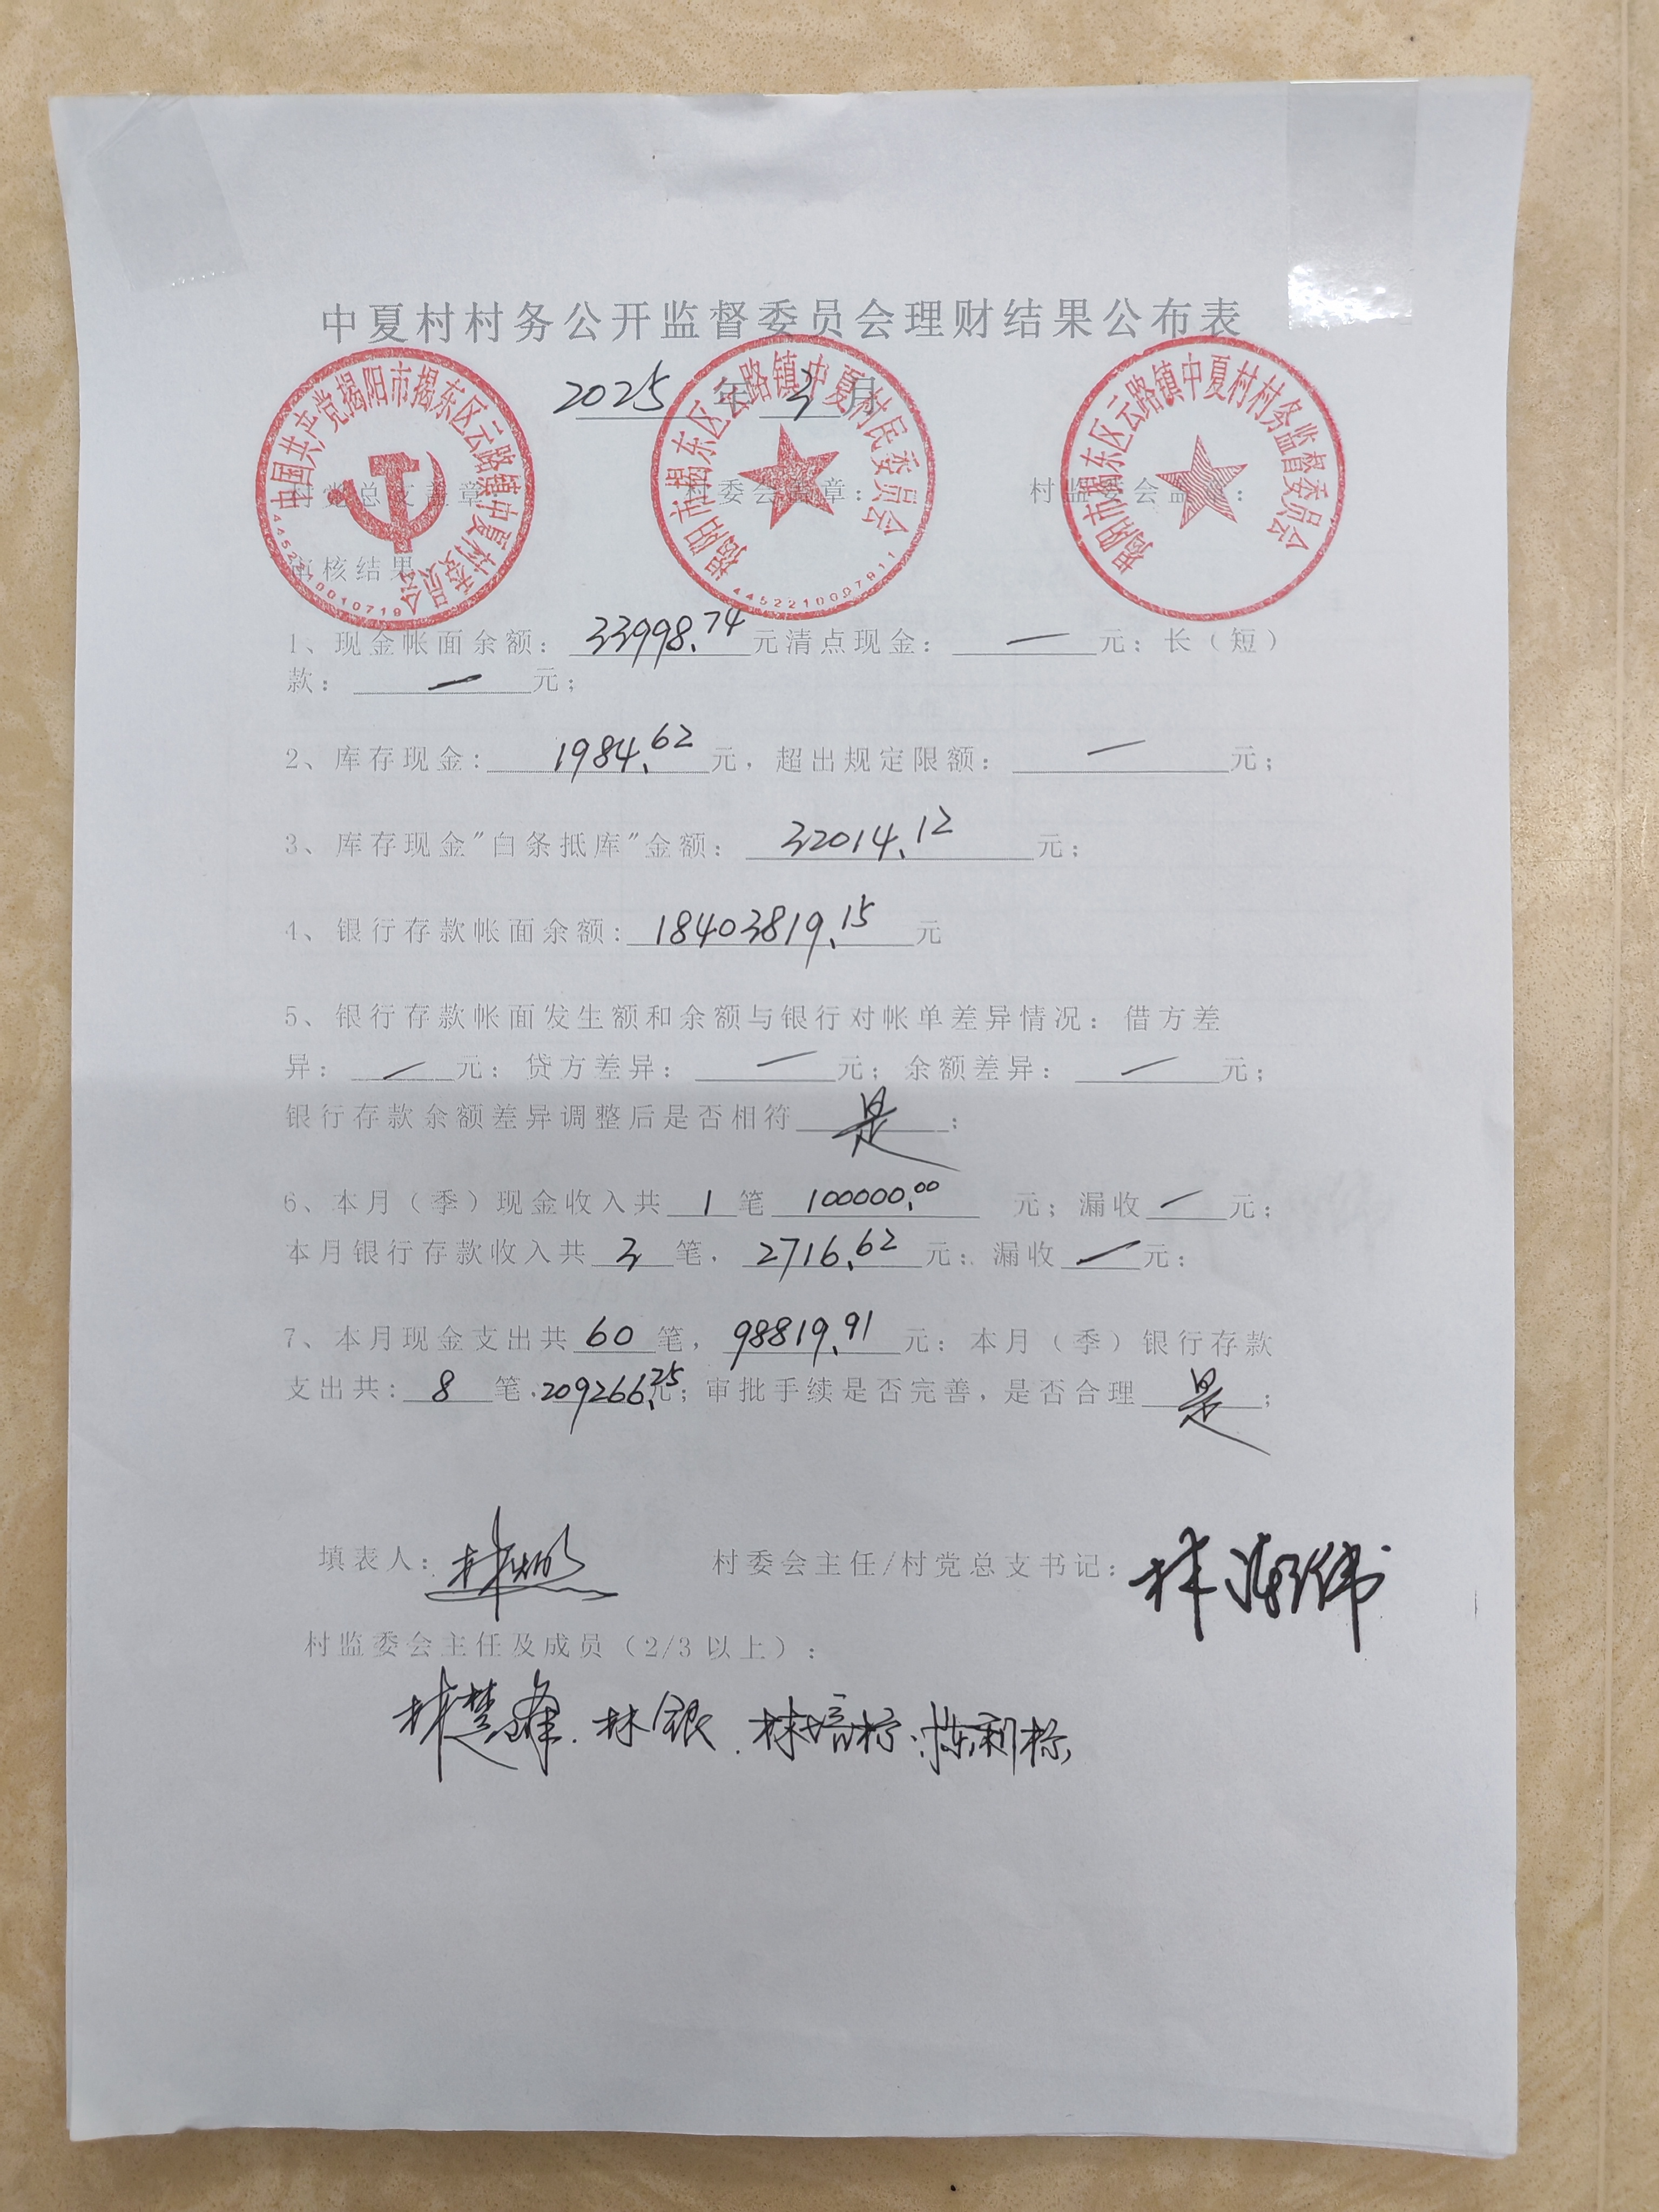 中夏村村务公开监督委员会理财结果公布表
2025 年 3 月
中国共产党揭阳市揭东区云路镇中夏村委员会
揭阳市揭东区云路镇中夏村民委员会
揭阳市揭东区云路镇中夏村村务监督委员会
村党总支盖章 村委会盖章: 村监委会盖章:
审核结果
1、现金帐面余额: 33998.74 元清点现金: 一 元;长(短)
款: 一 元;
2、库存现金: 1984.62 元,超出规定限额: 一 元;
3、库存现金"白条抵库"金额: 32014.12 元;
4、银行存款帐面余额: 18403819.15 元
5、银行存款帐面发生额和余额与银行对帐单差异情况:借方差
异: 一 元;贷方差异: 一 元;余额差异: 一 元;
银行存款余额差异调整后是否相符 是 ;
6、本月(季)现金收入共 1 笔 100000.00 元;漏收 一 元;
本月银行存款收入共 3 笔, 2716.62 元;漏收 一 元;
7、本月现金支出共 60 笔, 98819.91 元;本月(季)银行存款
支出共: 8 笔,209266.25元;审批手续是否完善,是否合理 是 ;
填表人: 村委会主任/村党总支书记: 林
村监委会主任及成员(2/3以上):
林楚峰.林银.林培